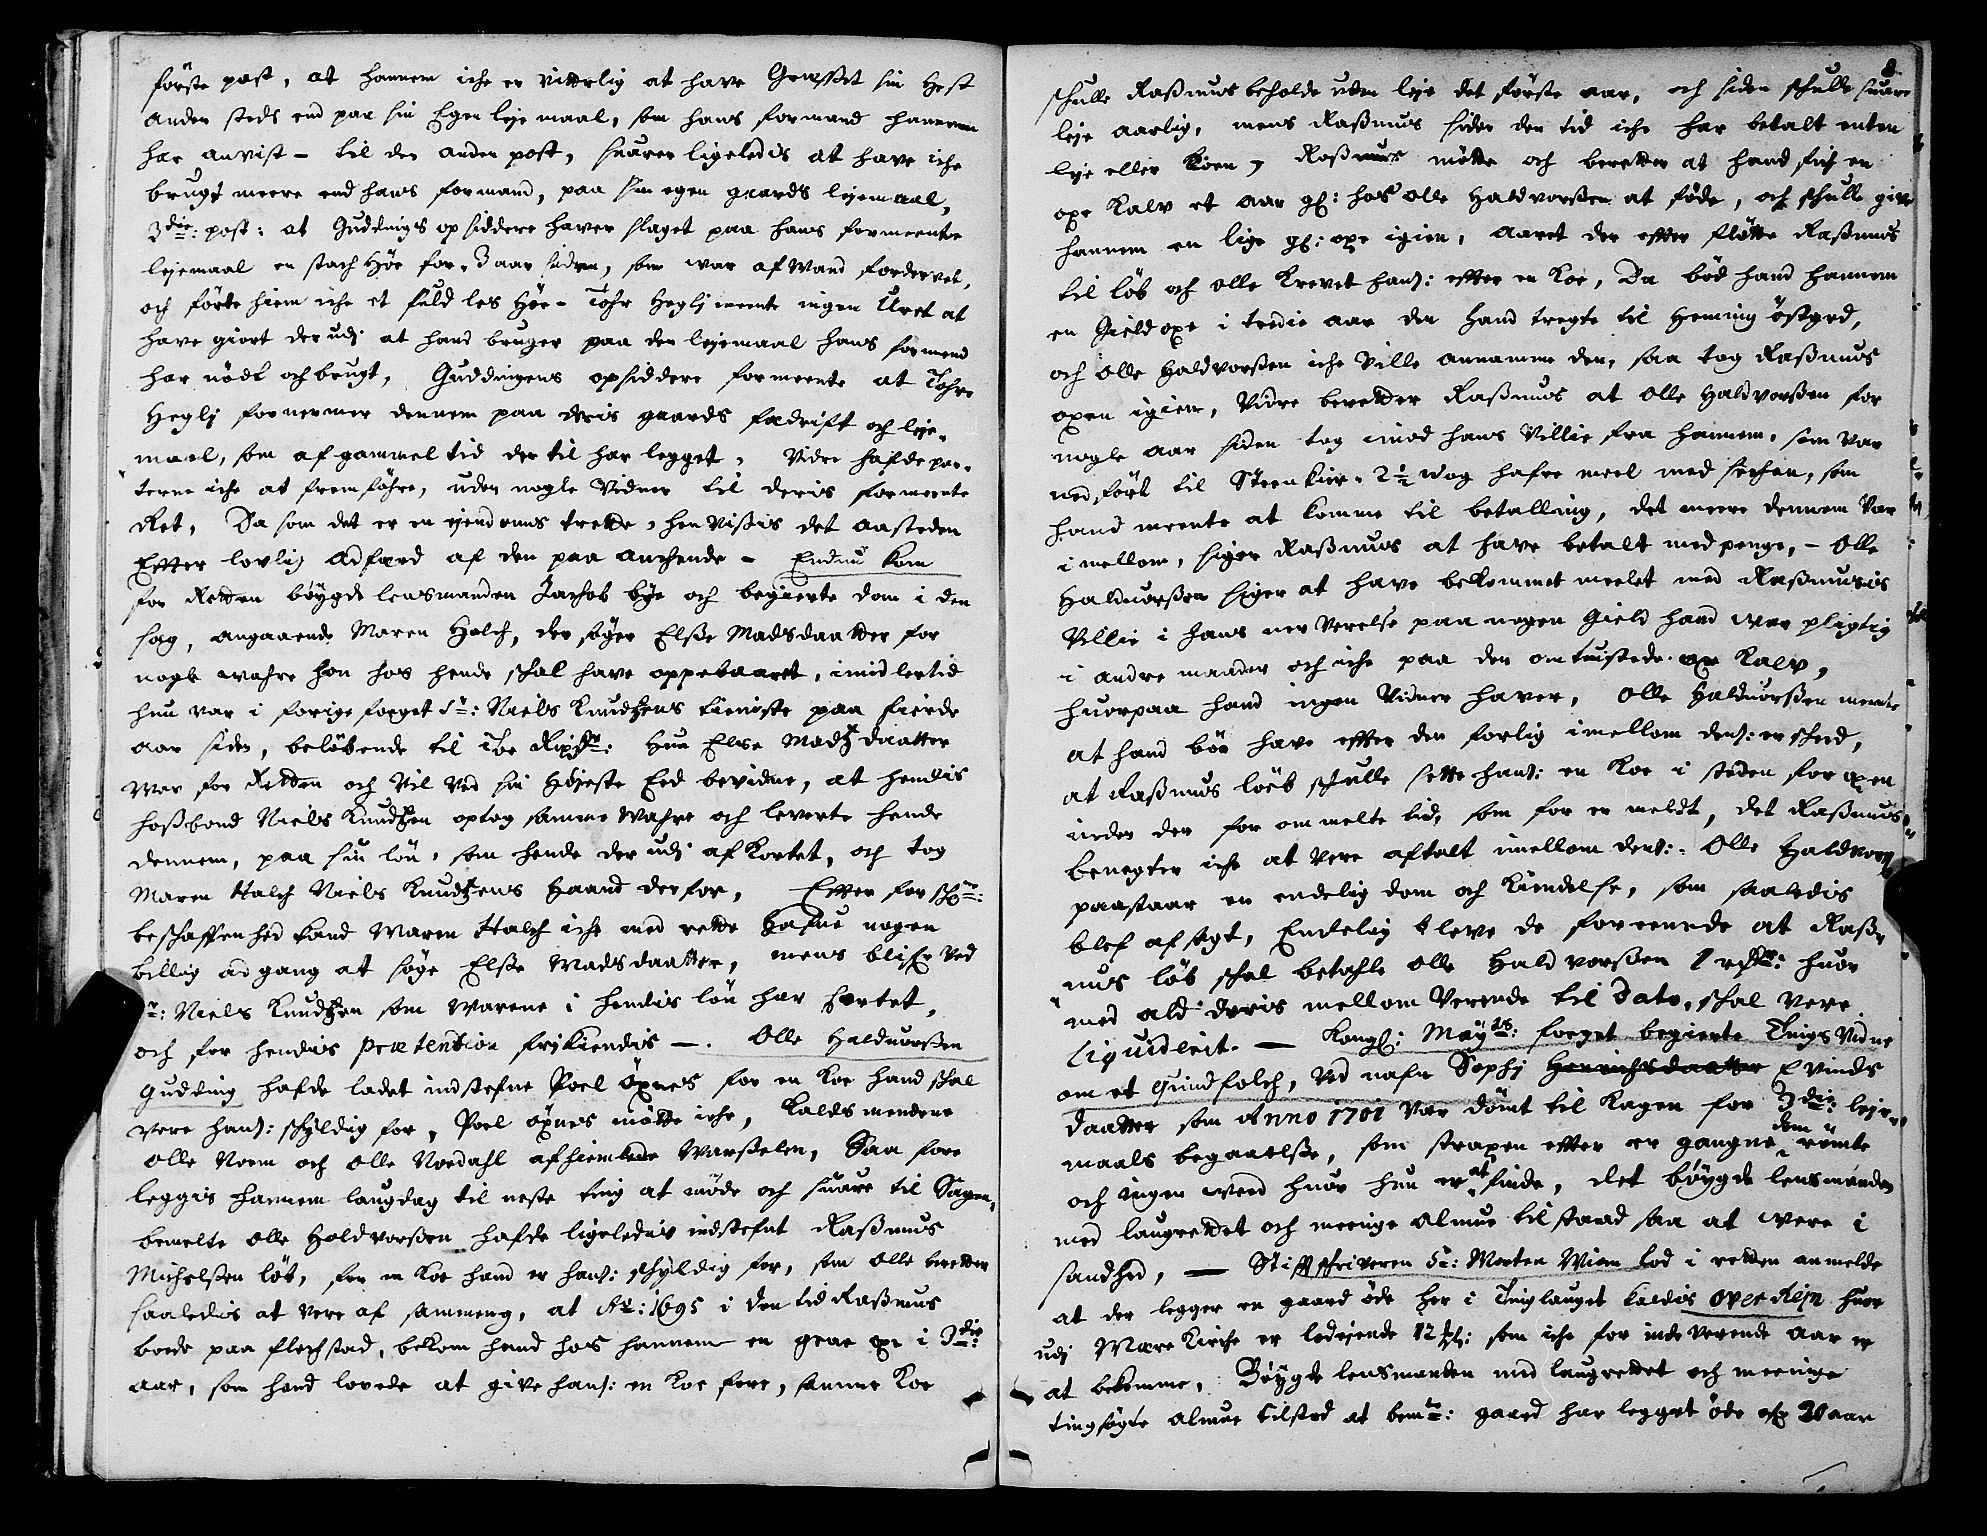 förste post, at hannem iche er vitterlig at have Gresset sin Hest
anden steds end paa sin Egen leje maal, som hans formand hannem
har anvist - til den anden post, suarer ligeledis at have iche
brugt meere end hans formand, paa sin egen gaards lejemaal,
3die: post: at Guddings opsiddere haver slaget paa hans formeente
lejemaal en stach Höe for 3 aar siden, som war af Wand fordervet,
och förte hiem iche et fuld les Höe - Tohr Heglj meente ingen Uret at
have giort der udj at hand bruger paa den lejemaal hans formend
har nödt och brugt, Guddingens opsiddere formeente at Tohre
Heglj fornermer dennem paa deris gaards fædrift och leje-
maal, som af gammel tid der til har legget, Vidre hafde par-
terne iche at fremföhre, uden nogle Vidner til deris formeente
Ret, Da som det er en ejendoms trette, henvissis det aasteden
Efter lovlig adfærd af den paa anchende - Endnu kom
for Retten böygde lensmanden Jachob bye och begierte dom i den
sag, angaaende Maren Holch, der söger Elsse Madsdaatter for
nogle wahre hon hos hende schal have oppebaaret, imidlertid
hun var i forige foeget Sr: Niels Knudtzens tieniste paa fierde
aar siden, belöbende til Toe Rixdr: Hun Else Madtzdaatter
war for Retten och vil ved sin Höjeste Eed bevidne, at hendis
hossbond Niels Knudtzen optog samme Wahre och leverte hende
dennem, paa sin lön, som hende der udj afkortet, och tog
Maren Halch Niels Knudtzens Haand derfor, Efter forschne:
beschaffenhed kand Maren Halch iche med rette hafve nogen
billig adgang at söge Elsse Madsdaatter, mens blifve ved
Sr: Niels Knudtzen som Warene i hendis lön har kortet,
och for hendis prætention frikiendis -. Olle Halduorssen
Gudding hafde ladet indstefne Poel Öxnes for en Koe hand schal
vere hans: schyldig for, Poel Öxnes mötte iche, Kalds mendene
Olle Noem och Olle Nordahl afhiemlede Warsselen, Saa fore
leggis hannem laugdag til neste ting at möde och suare til Sagen,
bemelte Olle Holdvorssen hafde ligeledis indstefnt Rassmus
Michelssen löb, for en Koe hand er hans: schyldig for, som Olle beretter
saaledis at vere af sammeng, at Ao: 1695 i den tid Rassmus
boede paa flechstad, bekom hand hos hannem en graa oxe i 3die
aar, som hand lovede at give hans: en Koe fore, samme Koe
8.
schulle Rassmus beholde uden leje det förste aar, och siden schulle suare
leje aarlig, mens Rassmus siden den tid iche har betalt enten
leje eller Koen, Rassmus mötte och beretter at hand fich en
oxe Kalv et aar gl: hos Olle Haldvorssen at föde, och schulle give
hannem en lige gl: oxe igien, aaret der efter flötte Rassmus
til löb och Olle Krevet hans: efter en Koe, Da böd hand hannem
en Gield oxe i tredie aar den hand tragte til Heming östgrd,
och Olle Haldvorssen iche Ville annamme den, saa tog Rassmus
oxen igien, Vidre beretter Rassmus at Olle Haldvorssen for
nogle aar siden tog imod hans Villie fra hannem, som var
nedfört til Steenkier, 2½ Wog hafre meel med sechen, som
hand meente at komme til betalling, det meere dennem Var
imellom, siger Rassmus at have betalt med penge, - Olle
Halduorssen siger at have bekommet meelet med Rassmusis
Villie i hans nerverelse paa nogen Gield hand war pligtig
i andre maader och iche paa den omtuistede oxe Kalv,
huorpaa hand ingen Vidner haver, Olle Halduorssen meente
at hand bör have efter den forlig imellom dens: er scheed,
at Rassmus löeb schulle sette hans: en Koe i steden for oxen
inden den for ommelte tid, som for er meldt, det Rassmus
benegter iche at vere aftalt imellom dens: Olle Haldvors:
paastaar en endelig dom och Kiendelse, som saaledis
blef afsagt, Endelig bleve de foreenede at Rass-
mus löb schal betahle Olle Haldvorssen 1 rixdr: huor
med ald deris mellom Verende til Dato, schal vere
liqviderit. - Kongl: Maytts: foeget begierte Tings Vidne
om et quindfolch, ved nafn Sophj Henrichsdaatter Evinds
daatter som Anno 1701 var dömt til Kagen for 3die: leje-
maals begaaelsse, som strapen efter er gangne dom römte
och ingen weed huor hun er at finde, det böygde lensmanden
med laugrettet och meenige almue tilstaad saa at were i
sandhed, - Stiftschriveren Sr: Morten Wiem lod i retten anmelde
at der legger en gaard öde her i Tinglauget kaldis over Rejn huor
udj Mære Kirche er lodejende 12 mkl: som iche for inde verende aar er
at bekomme, Böygde lensmanden med laugrettet och meenige
tingsögte almue tilstod at bemte: gaard har legget öde ofr 20 aar